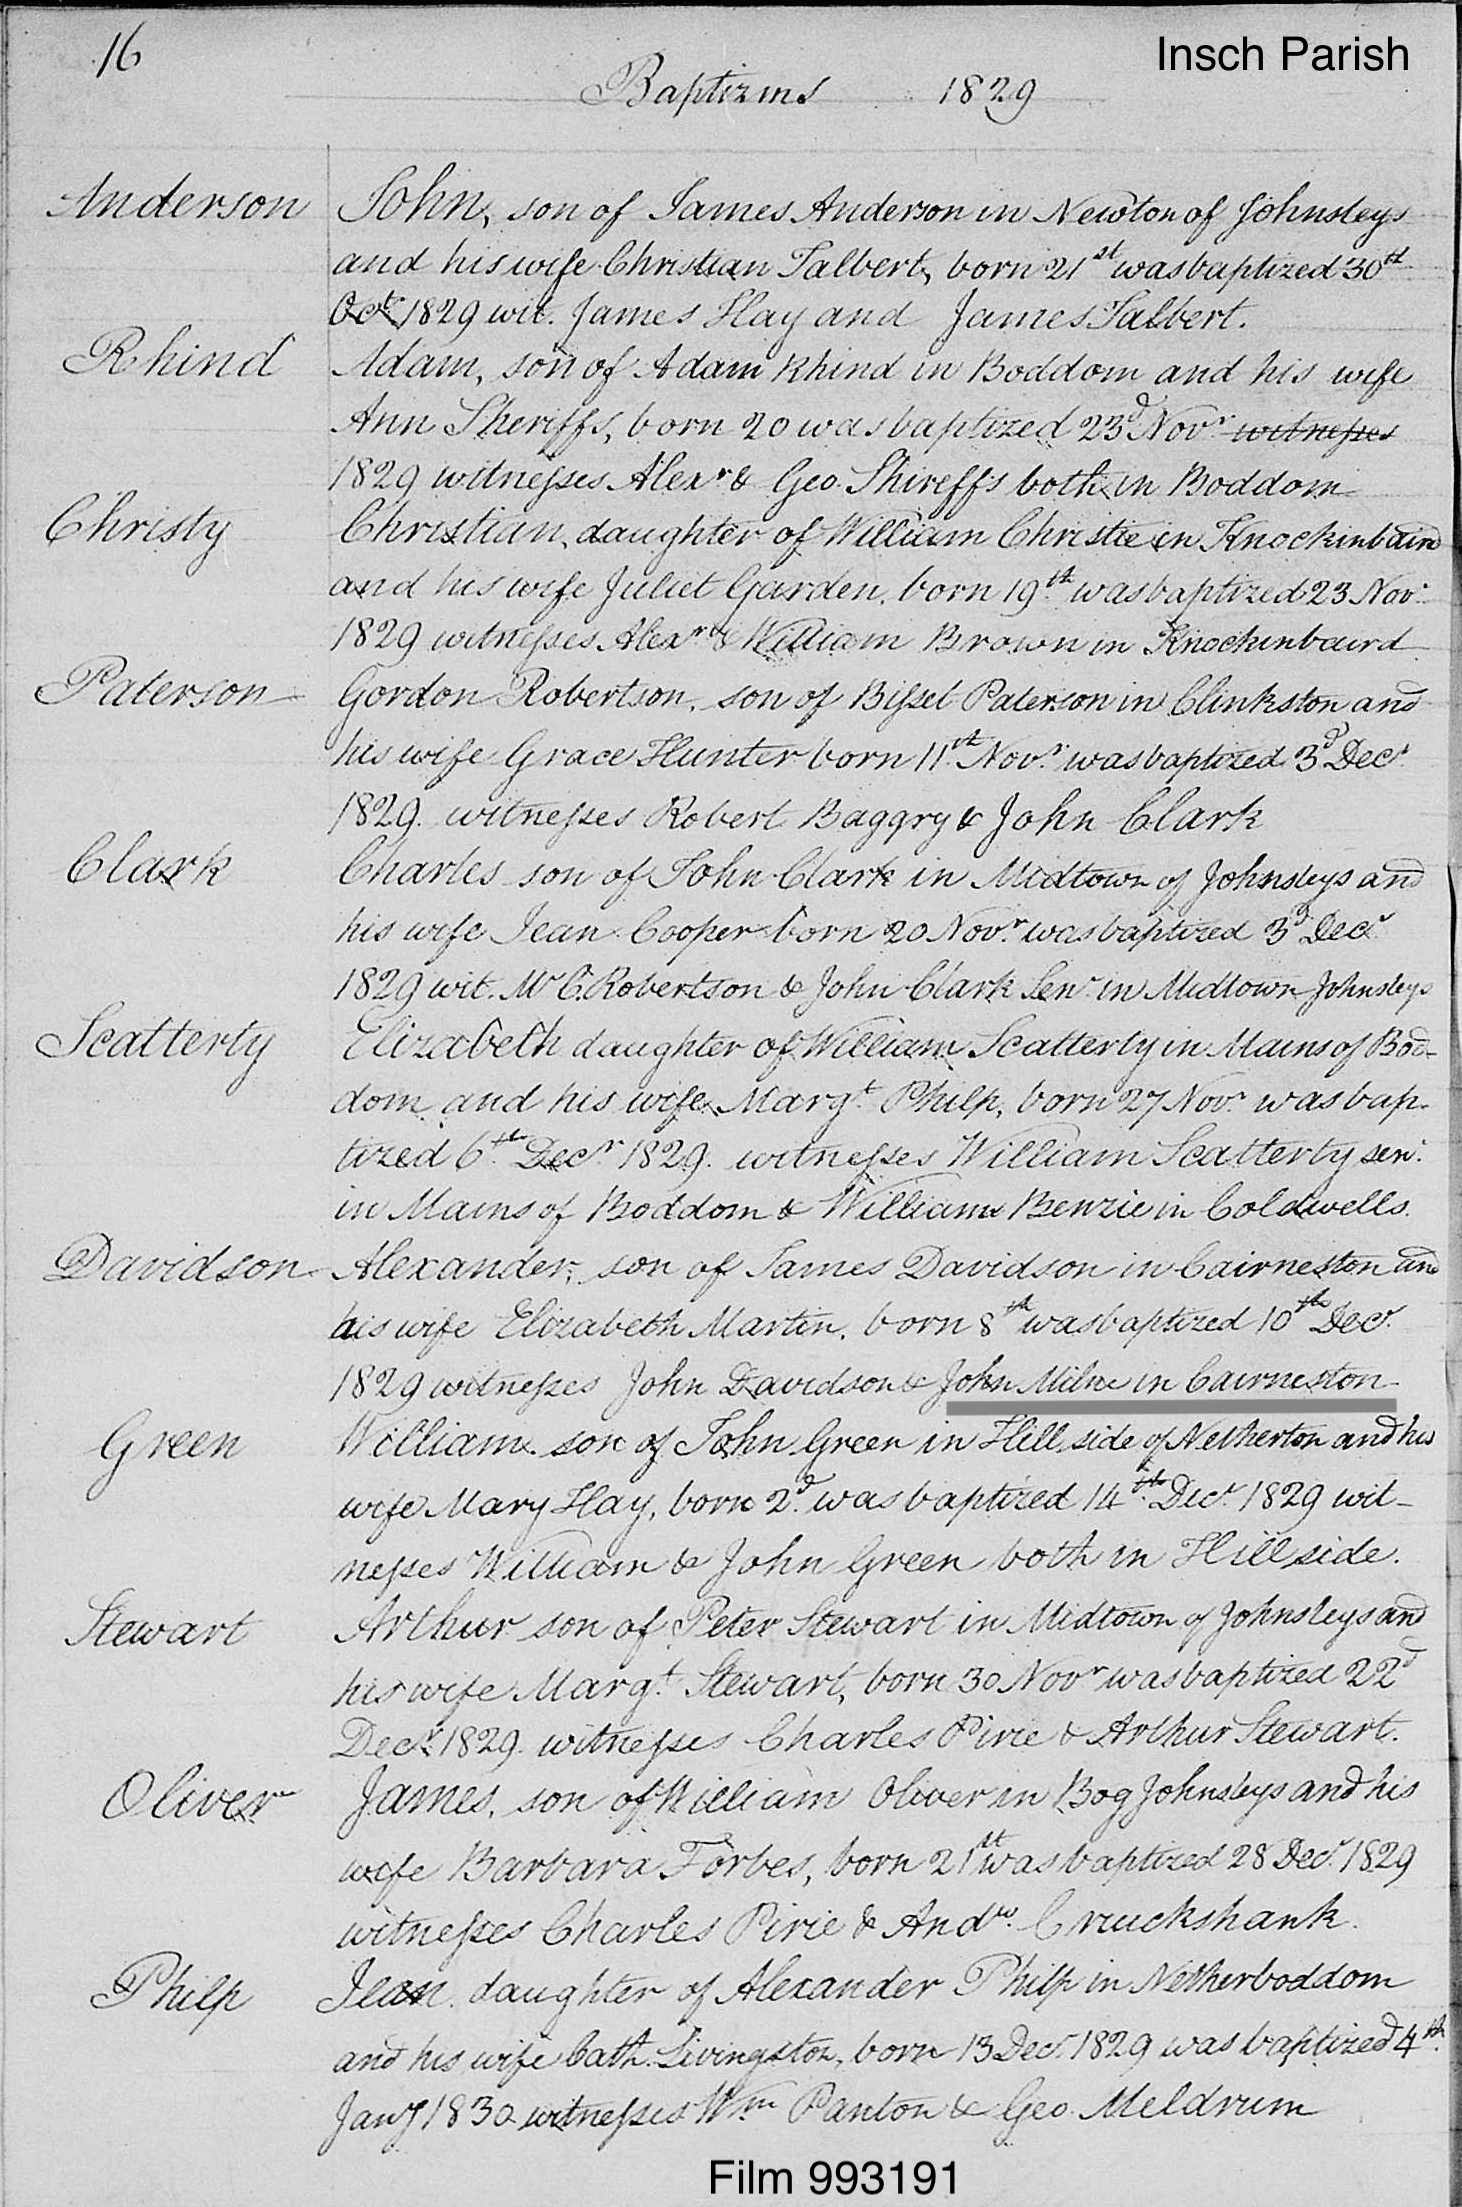 16
Insch Parish
Baptizms 1829
Anderson John, son of James Anderson in Newton of Johnsleys
and his wife Christian Talbert, born 21st was baptized 30th
Octr 1829 wit. James Hay and James Talbert.
Rhind Adam, son of Adam Rhind in Boddom and his wife
Ann Sheriffs, born 20 was baptized 23d Novr witnesses
1829 witnesses Alexr & Geo. Shireffs both in Boddom
Christy Christian, daughter of William Christie in Knockinbaird
and his wife Juliet Garden. born 19th was baptized 23 Novr
1829 witnesses Alexr & William Brown in Knockinbaird
Paterson Gordon Robertson, son of Bisset Paterson in Clinkston and
his wife Grace Hunter born 11th Novr was baptized 3d Decr
1829. witnesses Robert Baggry & John Clark
Clark Charles son of John Clark in Midtown of Johnsleys and
his wife Jean Cooper born 20 Novr was baptized 3d Decr
1829 wit. Mr C. Robertson & John Clark Senr in Midtown Johnsleys
Scatterty Elizabeth daughter of William Scatterty in Mains of Bod-
dom and his wife Margt Philp, born 27 Novr was bap-
tized 6th Decr 1829. witnesses William Scatterty senr.
in Mains of Boddom & William Benzie in Coldwells.
Davidson Alexander, son of James Davidson in Cairneston and
his wife Elizabeth Martin. born 8th was baptized 10th Decr.
1829 witnesses John Davidson & John Milne in Cairneston
Green William son of John Green in Hill side of Netherton and his
wife Mary Hay, born 2d was baptized 14th Decr 1829 wit-
nesses William & John Green both in Hillside.
Stewart Arthur son of Peter Stewart in Midtown of Johnsleys and
his wife Margt Stewart, born 30 Novr was baptized 22d
Decr 1829. witnesses Charles Pirie & Arthur Stewart.
Oliver James, son of William Oliver in Bog Johnsleys and his
wife Barbara Forbes, born 21st was baptized 28 Decr 1829
witnesses Charles Pirie & Andw. Cruckshank.
Philp Jean daughter of Alexander Philp in Netherboddom
and his wife Cath. Livingston, born 13 Decr 1829 was baptized 4th.
Jany 1830 witnesses Wm Panton & Geo. Meldrum
Film 993191